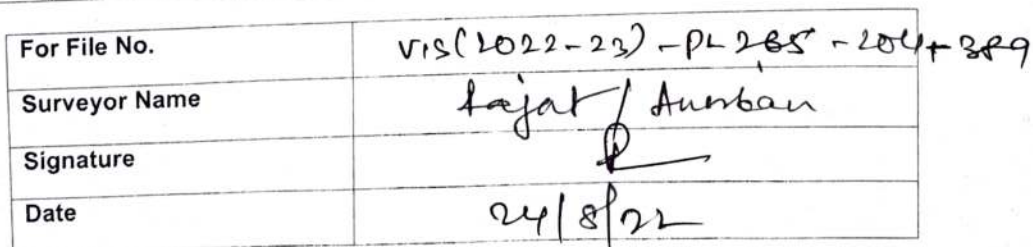 For File No. VIS(2022-23)-PL265-204-389
Surveyor Name Rajat / Anirban
Signature
Date 24/8/22